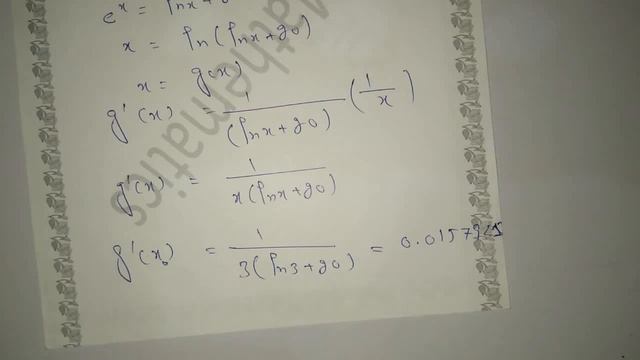 e^x = lnx+20
x = ln(lnx+20)
x = g(x)
g'(x) = 1/(lnx+20) (1/x)
g'(x) = 1/x(lnx+20)
g'(x₀) = 1/3(ln3+20) = 0.0157
Mathematics